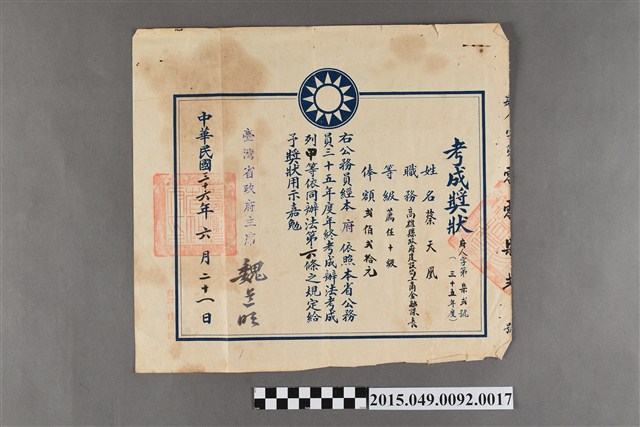 考成獎狀
府人字第 柒貳號
（三十五年度）
姓名 蔡天鳳
職務 高雄縣政府建設局工商金融課長
等級 薦任十級
俸額 貳佰貳拾元
右公務員經本府依照本省公務
員三十五年度年終考成辦法考成
列甲等依同辦法第六條之規定給
予獎狀用示嘉勉
臺灣省政府主席
魏道明
中華民國三十六年六月二十一日
2015.049.0092.0017